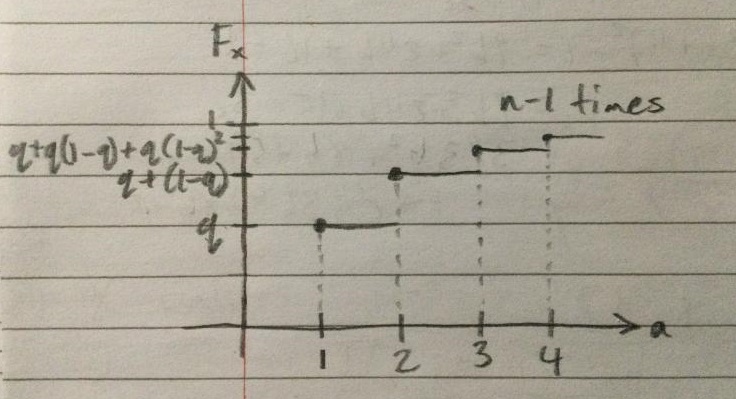 Fx
n-1 times
1
q+q(1-q)+q(1-q)²
q+(1-q)
q
a
1 2 3 4